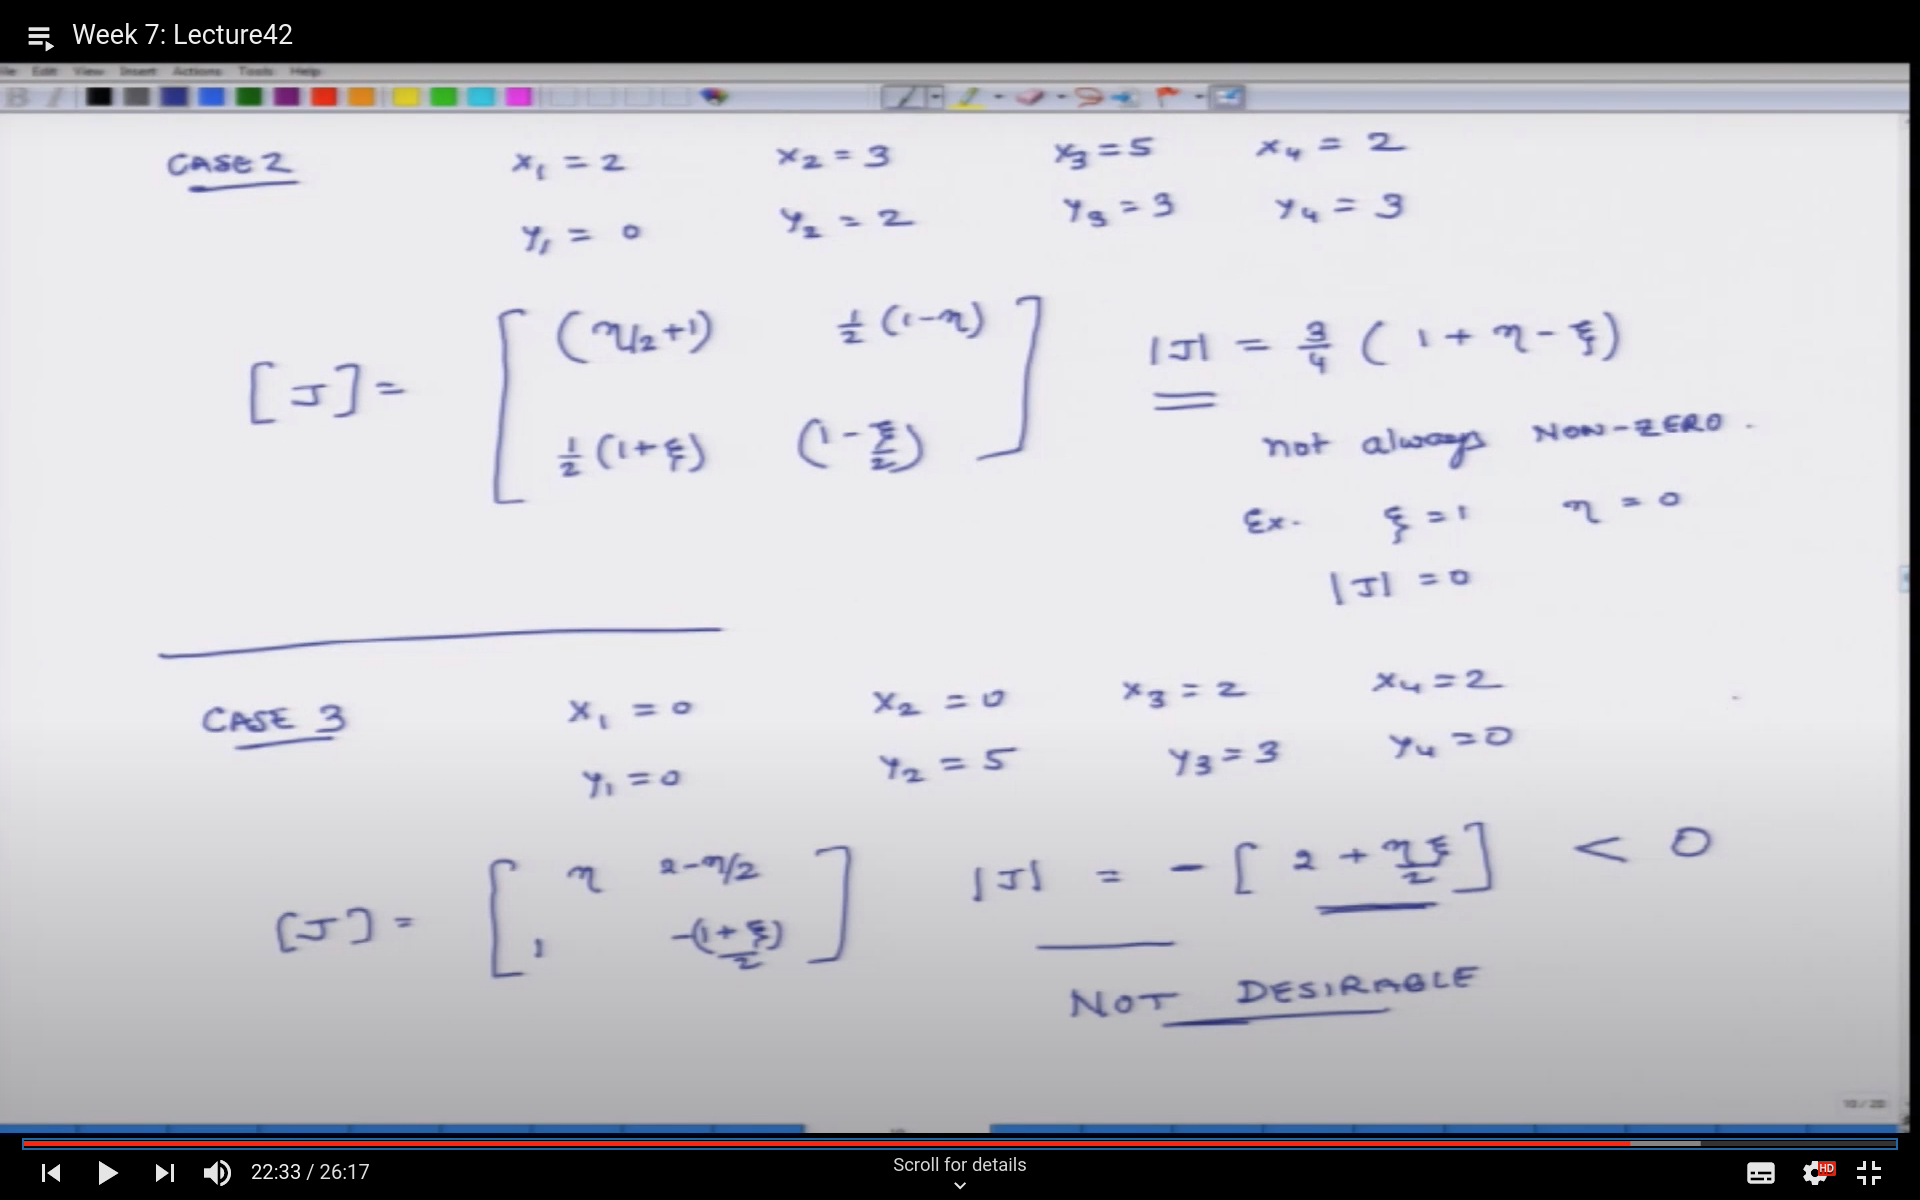 Week 7: Lecture42
File Edit View Insert Actions Tools Help
CASE 2 x₁ = 2 x₂ = 3 x₃ = 5 x₄ = 2
y₁ = 0 y₂ = 2 y₃ = 3 y₄ = 3
[J] = [ (η/2+1) ½(1-η) ; ½(1+ξ) (1-ξ/2) ] |J| = ¾ (1 + η - ξ)
not always NON-ZERO.
Ex. ξ = 1 η = 0
|J| = 0
CASE 3 x₁ = 0 x₂ = 0 x₃ = 2 x₄ = 2
y₁ = 0 y₂ = 5 y₃ = 3 y₄ = 0
[J] = [ η 2-η/2 ; 1 -(1+ξ)/2 ] |J| = -[2 + ηξ/2] < 0
NOT DESIRABLE
10 / 20
22:33 / 26:17
Scroll for details
HD